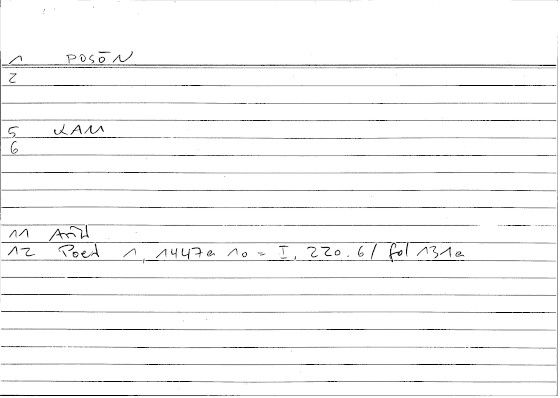 1 POSŌN
2
5 KAM
6
11 Aṙīd
12 Poet 1, 1447a 10 = I, 220.6 / fol 131a